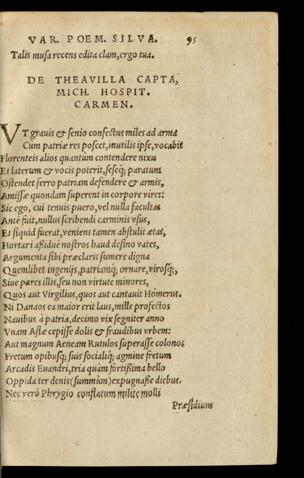 VAR. POEM. SILVA. 95
Talis musa recens edita clam, ergo tua.
DE THEAVILLA CAPTA,
MICH. HOSPIT.
CARMEN.
VT grauis & senio confectus miles ad arma
Cum patriæ res poscet, inutilis ipse, vocabit
Florenteis alios quantum contendere nixu
Et laterum & vocis poterit, seseq; paratum
Ostendet ferro patriam defendere & armis,
Amissæ quondam superent in corpore vires:
Sic ego, cui tenuis puero, vel nulla facultas
Ante fuit, nullus scribendi carminis vsus,
Et siquid fuerat, veniens tamen abstulit ætas,
Hortari aßiduè nostros haud desino vates,
Argumenta sibi præclaris sumere digna
Quemlibet ingenijs, patriamq; ornare, virosq;,
Siue pares illis, seu non virtute minores,
Quos aut Virgilius, quos aut cantauit Homerus.
Ni Danaos ea maior erit laus, mille profectos
Nauibus à patria, decimo vix segniter anno
Vnam Asiæ cepisse dolis & fraudibus vrbem:
Aut magnum Aeneam Rutulos superasse colonos
Fretum opibusq; suis socialiq; agmine fretum
Arcadis Euandri, tria quàm fortißima bello
Oppida ter denis (summùm) expugnaße diebus.
Nec verò Phrygio conflatum milite molli
Præsidium